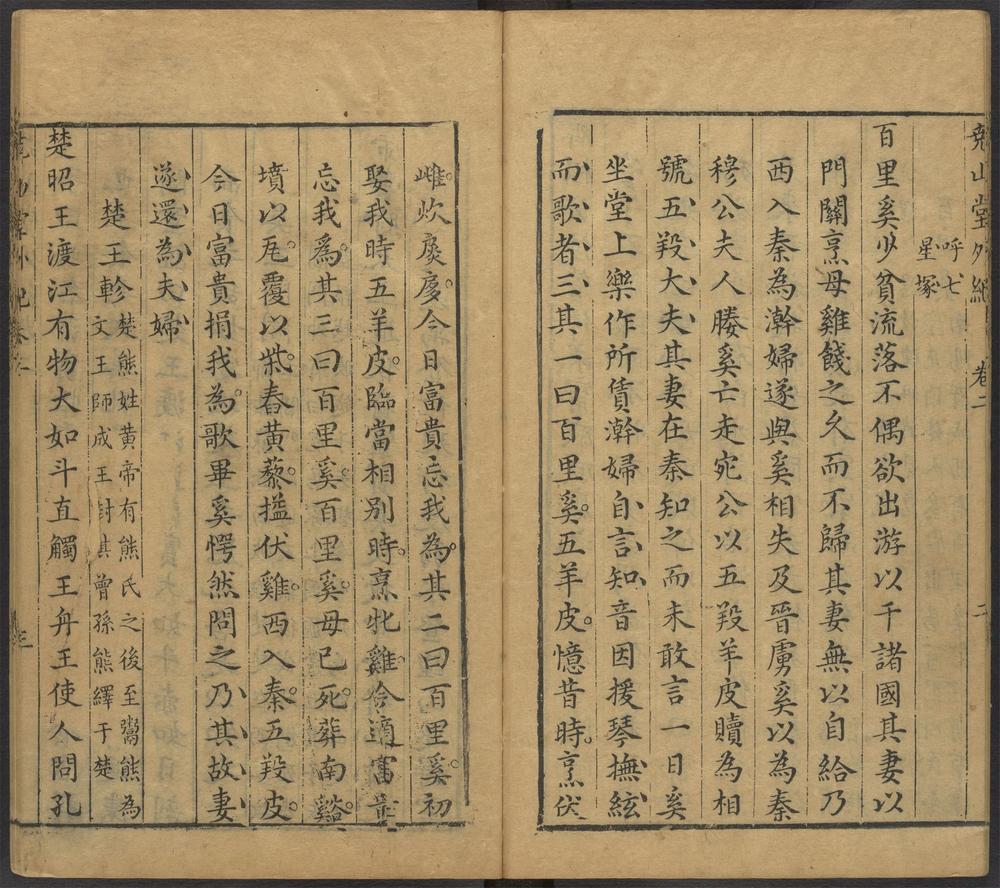 堯山堂外紀 卷二 二
呼七
星塚
百里奚少貧流落不偶欲出游以千諸國其妻以
門關烹母雞餞之久而不歸其妻無以自給乃
西入秦為澣婦遂與奚相失及晉虜奚以為秦
穆公夫人媵奚亡走宛公以五羖羊皮贖為相
號五羖大夫其妻在秦知之而未敢言一日奚
坐堂上樂作所賃澣婦自言知音因援琴撫絃
而歌者三其一曰百里奚五羊皮憶昔時烹伏
雌炊扊扅今日富貴忘我為其二曰百里奚初
娶我時五羊皮臨當相別時烹牝雞今適富貴
忘我為其三曰百里奚百里奚母已死葬南谿
墳以瓦覆以柴舂黃藜搤伏雞西入秦五羖皮
今日富貴捐我為歌畢奚愕然問之乃其故妻
遂還為夫婦
楚王軫
楚熊姓黃帝有熊氏之後至鬻熊為
文王師成王封其曾孫熊繹于楚
楚昭王渡江有物大如斗直觸王舟王使人問孔
三